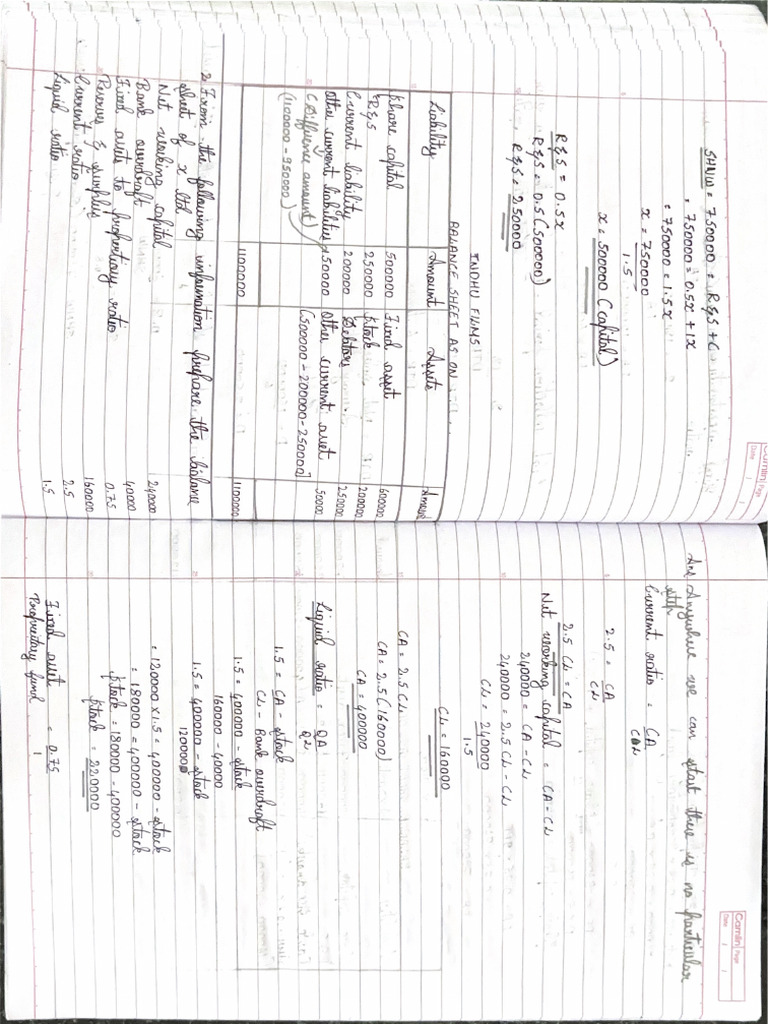 Camlin Page
Date / /
SH/W = 750000 = R&S + C
= 750000 = 0.5x + 1x
= 750000 = 1.5x
x = 750000
1.5
x = 500000 (capital)
R&S = 0.5x
R&S = 0.5 (500000)
R&S = 250000
INDHU FILMS
BALANCE SHEET AS ON
Liability Amount Assets Amount
Share capital 500000 Fixed asset 600000
R&S 250000 Stock 200000
Current liability 200000 Debtors 250000
Other current liabilities 150000 Other current asset 50000
(Difference amount) [500000 - 200000 - 250000]
(1100000 - 950000)
1100000 1100000
2. From the following information prepare the balance
sheet of x ltd
Net working capital 240000
Bank overdraft 40000
Fixed asset to propertiary ratio 0.75
Reserves & surplus 160000
Current ratio 2.5
Liquid ratio 1.5
Camlin Page
Date / /
Ans Anywhere we can start there is no particular
step
Current ratio = CA
CL
2.5 = CA
CL
2.5 CL = CA
Net working capital = CA - CL
240000 = CA - CL
240000 = 2.5 CL - CL
CL = 240000
1.5
CL = 160000
CA = 2.5 CL
CA = 2.5 (160000)
CA = 400000
Liquid ratio = QA
QL
1.5 = CA - stock
CL - Bank overdraft
1.5 = 400000 - stock
160000 - 40000
1.5 = 400000 - stock
120000
= 120000 x 1.5 = 400000 - stock
= 180000 = 400000 - stock
stock = 180000 - 400000
stock = 220000
Fixed asset = 0.75
Proprietary fund 1